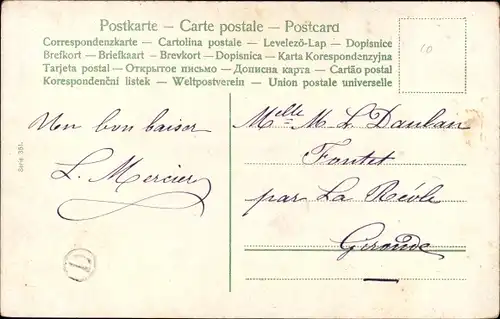 Postkarte — Carte postale — Postcard
Correspondenzkarte — Cartolina postale — Levelező-Lap — Dopisnice
Brefkort — Briefkaart — Brevkort — Dopisnica — Karta Korespondenzyjna
Tarjeta postal — Открытое письмо — Дописна карта — Cartão postal
Korespondenční lístek — Weltpostverein — Union postale universelle
10
Un bon baiser
L. Mercier
Melle M. L. Daulan
Fontet
par La Réole
Gironde
Serie 384